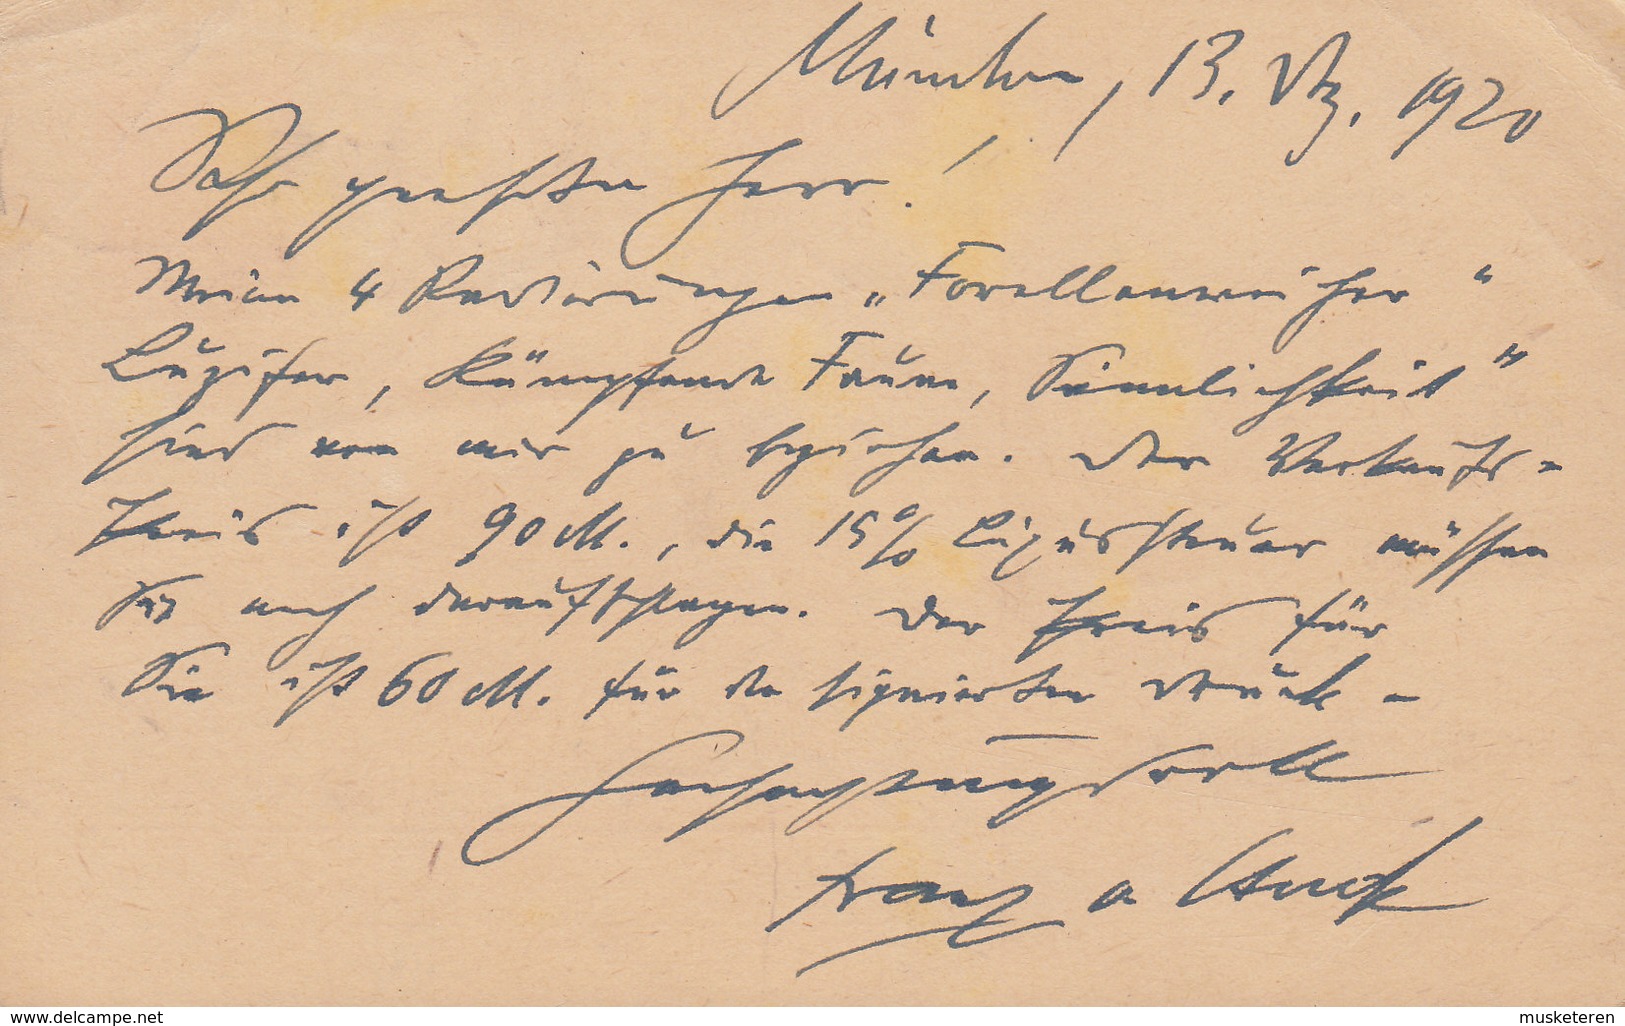 München, 13. Dz. 1920
Sehr geehrter Herr!
Meine 4 Radierungen „Forellenweiher“
Luzifer, Kämpfende Faune, Sinnlichkeit“
sind von mir zu beziehen. Der Verkaufs-
Preis ist 90 M., die 15% Luxussteuer müssen
Sie noch daraufschlagen. Der Preis für
Sie ist 60 M. für den signierten Druck –
Hochachtungsvoll
Franz
www.delcampe.net
musketeren